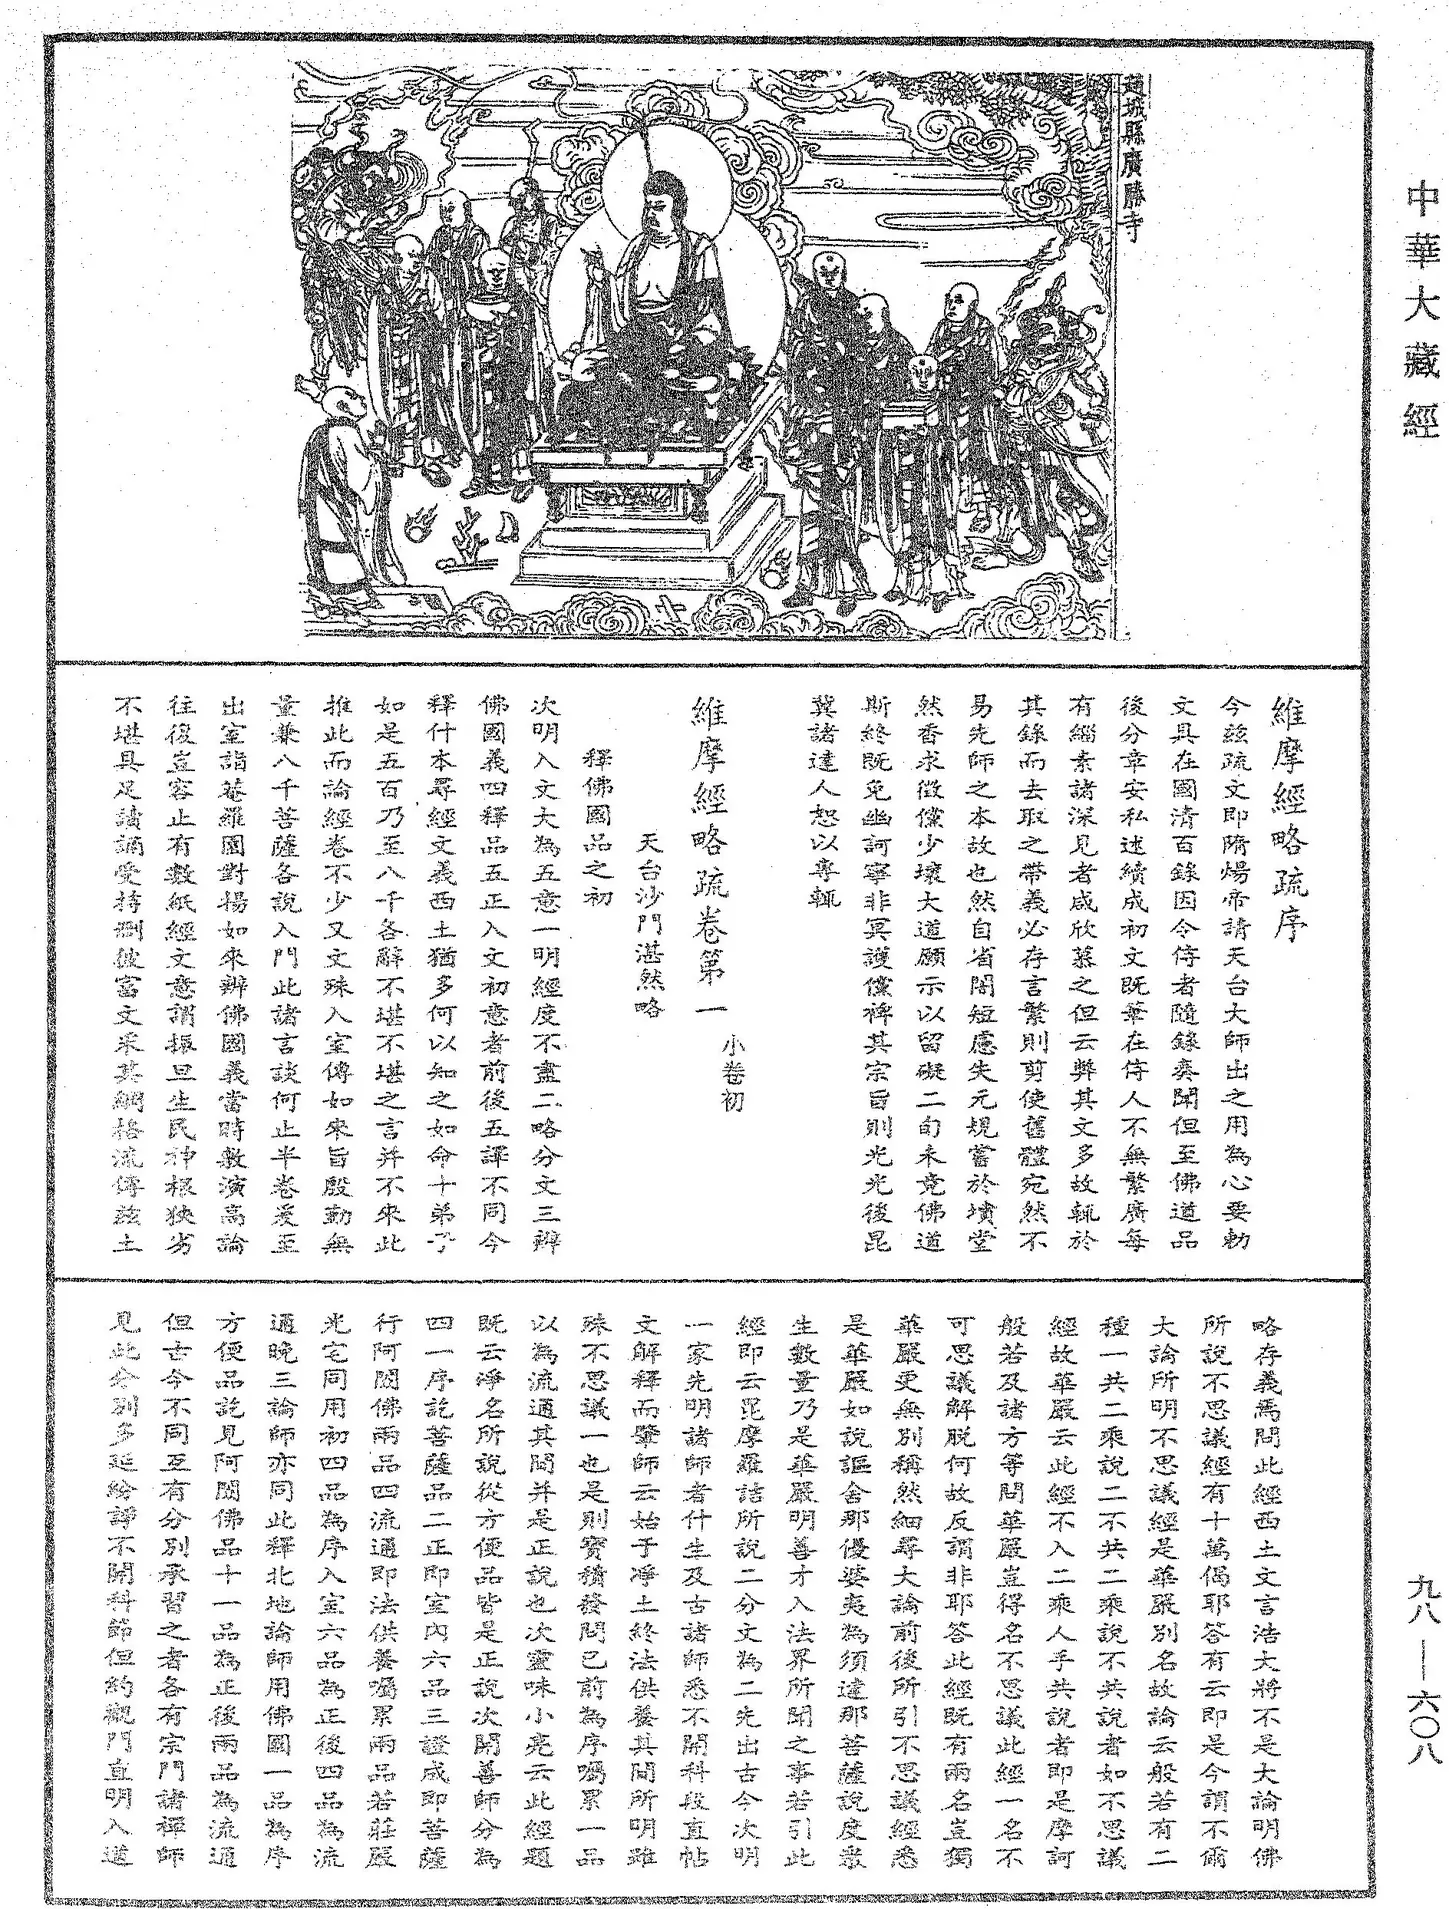 中華大藏經
趙城縣廣勝寺
維摩經略疏序
今茲疏文即隋煬帝請天台大師出之用為心要勅
文具在國清百錄因令侍者隨錄奏聞但至佛道品
後分章安私述續成初文既筆在侍人不無繁廣每
有緇素諸深見者咸欣慕之但云弊其文多故輒於
其錄而去取之帶義必存言繁則剪使舊體宛然不
易先師之本故也然自省闇短慮失元規嘗於墳堂
然香求徵儻少壞大道願示以留礙二旬未竟佛道
斯終既免幽訶寧非冥護儻裨其宗旨則光光後昆
冀諸達人恕以專輒
維摩經略疏卷第一 小卷初
天台沙門湛然略
釋佛國品之初
次明入文大為五意一明經度不盡二略分文三辨
佛國義四釋品五正入文初意者前後五譯不同今
釋什本尋經文義西土猶多何以知之如命十弟子
如是五百乃至八千各辭不堪不堪之言并不來此
推此而論經卷不少又文殊入室傳如來旨殷勤無
量兼八千菩薩各說入門此諸言談何止半卷爰至
出室詣菴羅園對揚如來辨佛國義當時敷演高論
往復豈容止有數紙經文意謂振旦生民神根狹劣
不堪具足讀誦受持刪彼富文采其綱格流傳茲土
略存義焉問此經西土文言浩大將不是大論明佛
所說不思議經有十萬偈耶答有云即是今謂不爾
大論所明不思議經是華嚴別名故論云般若有二
種一共二乘說二不共二乘說不共說者如不思議
經故華嚴云此經不入二乘人手共說者即是摩訶
般若及諸方等問華嚴豈得名不思議此經一名不
可思議解脫何故反謂非耶答此經既有兩名豈獨
華嚴更無別稱然細尋大論前後所引不思議經悉
是華嚴如說漚舍那優婆夷為須達那菩薩說度眾
生數量乃是華嚴明善才入法界所聞之事若引此
經即云毘摩羅詰所說二分文為二先出古今次明
一家先明諸師者什生及古諸師悉不開科段直帖
文解釋而肇師云始于淨土終法供養其間所明雖
殊不思議一也是則寶積發問已前為序囑累一品
以為流通其間并是正說也次靈味小亮云此經題
既云淨名所說從方便品皆是正說次開善師分為
四一序訖菩薩品二正即室內六品三證成即菩薩
行阿閦佛兩品四流通即法供養囑累兩品若莊嚴
光宅同用初四品為序入室六品為正後四品為流
通晚三論師亦同此釋北地論師用佛國一品為序
方便品訖見阿閦佛品十一品為正後兩品為流通
但古今不同互有分別承習之者各有宗門諸禪師
見此分別多延紛諍不開科節但約觀門直明入道
九八—六〇八